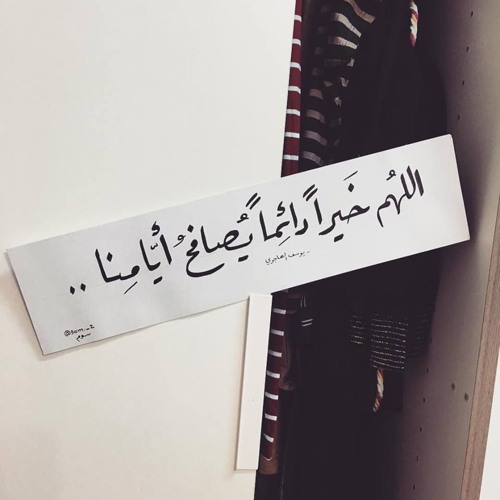 اللهُم خَيراً دائِماً يُصافحُ أيّامِنا ..
- يوسف إهاجري
@som_2
سوم